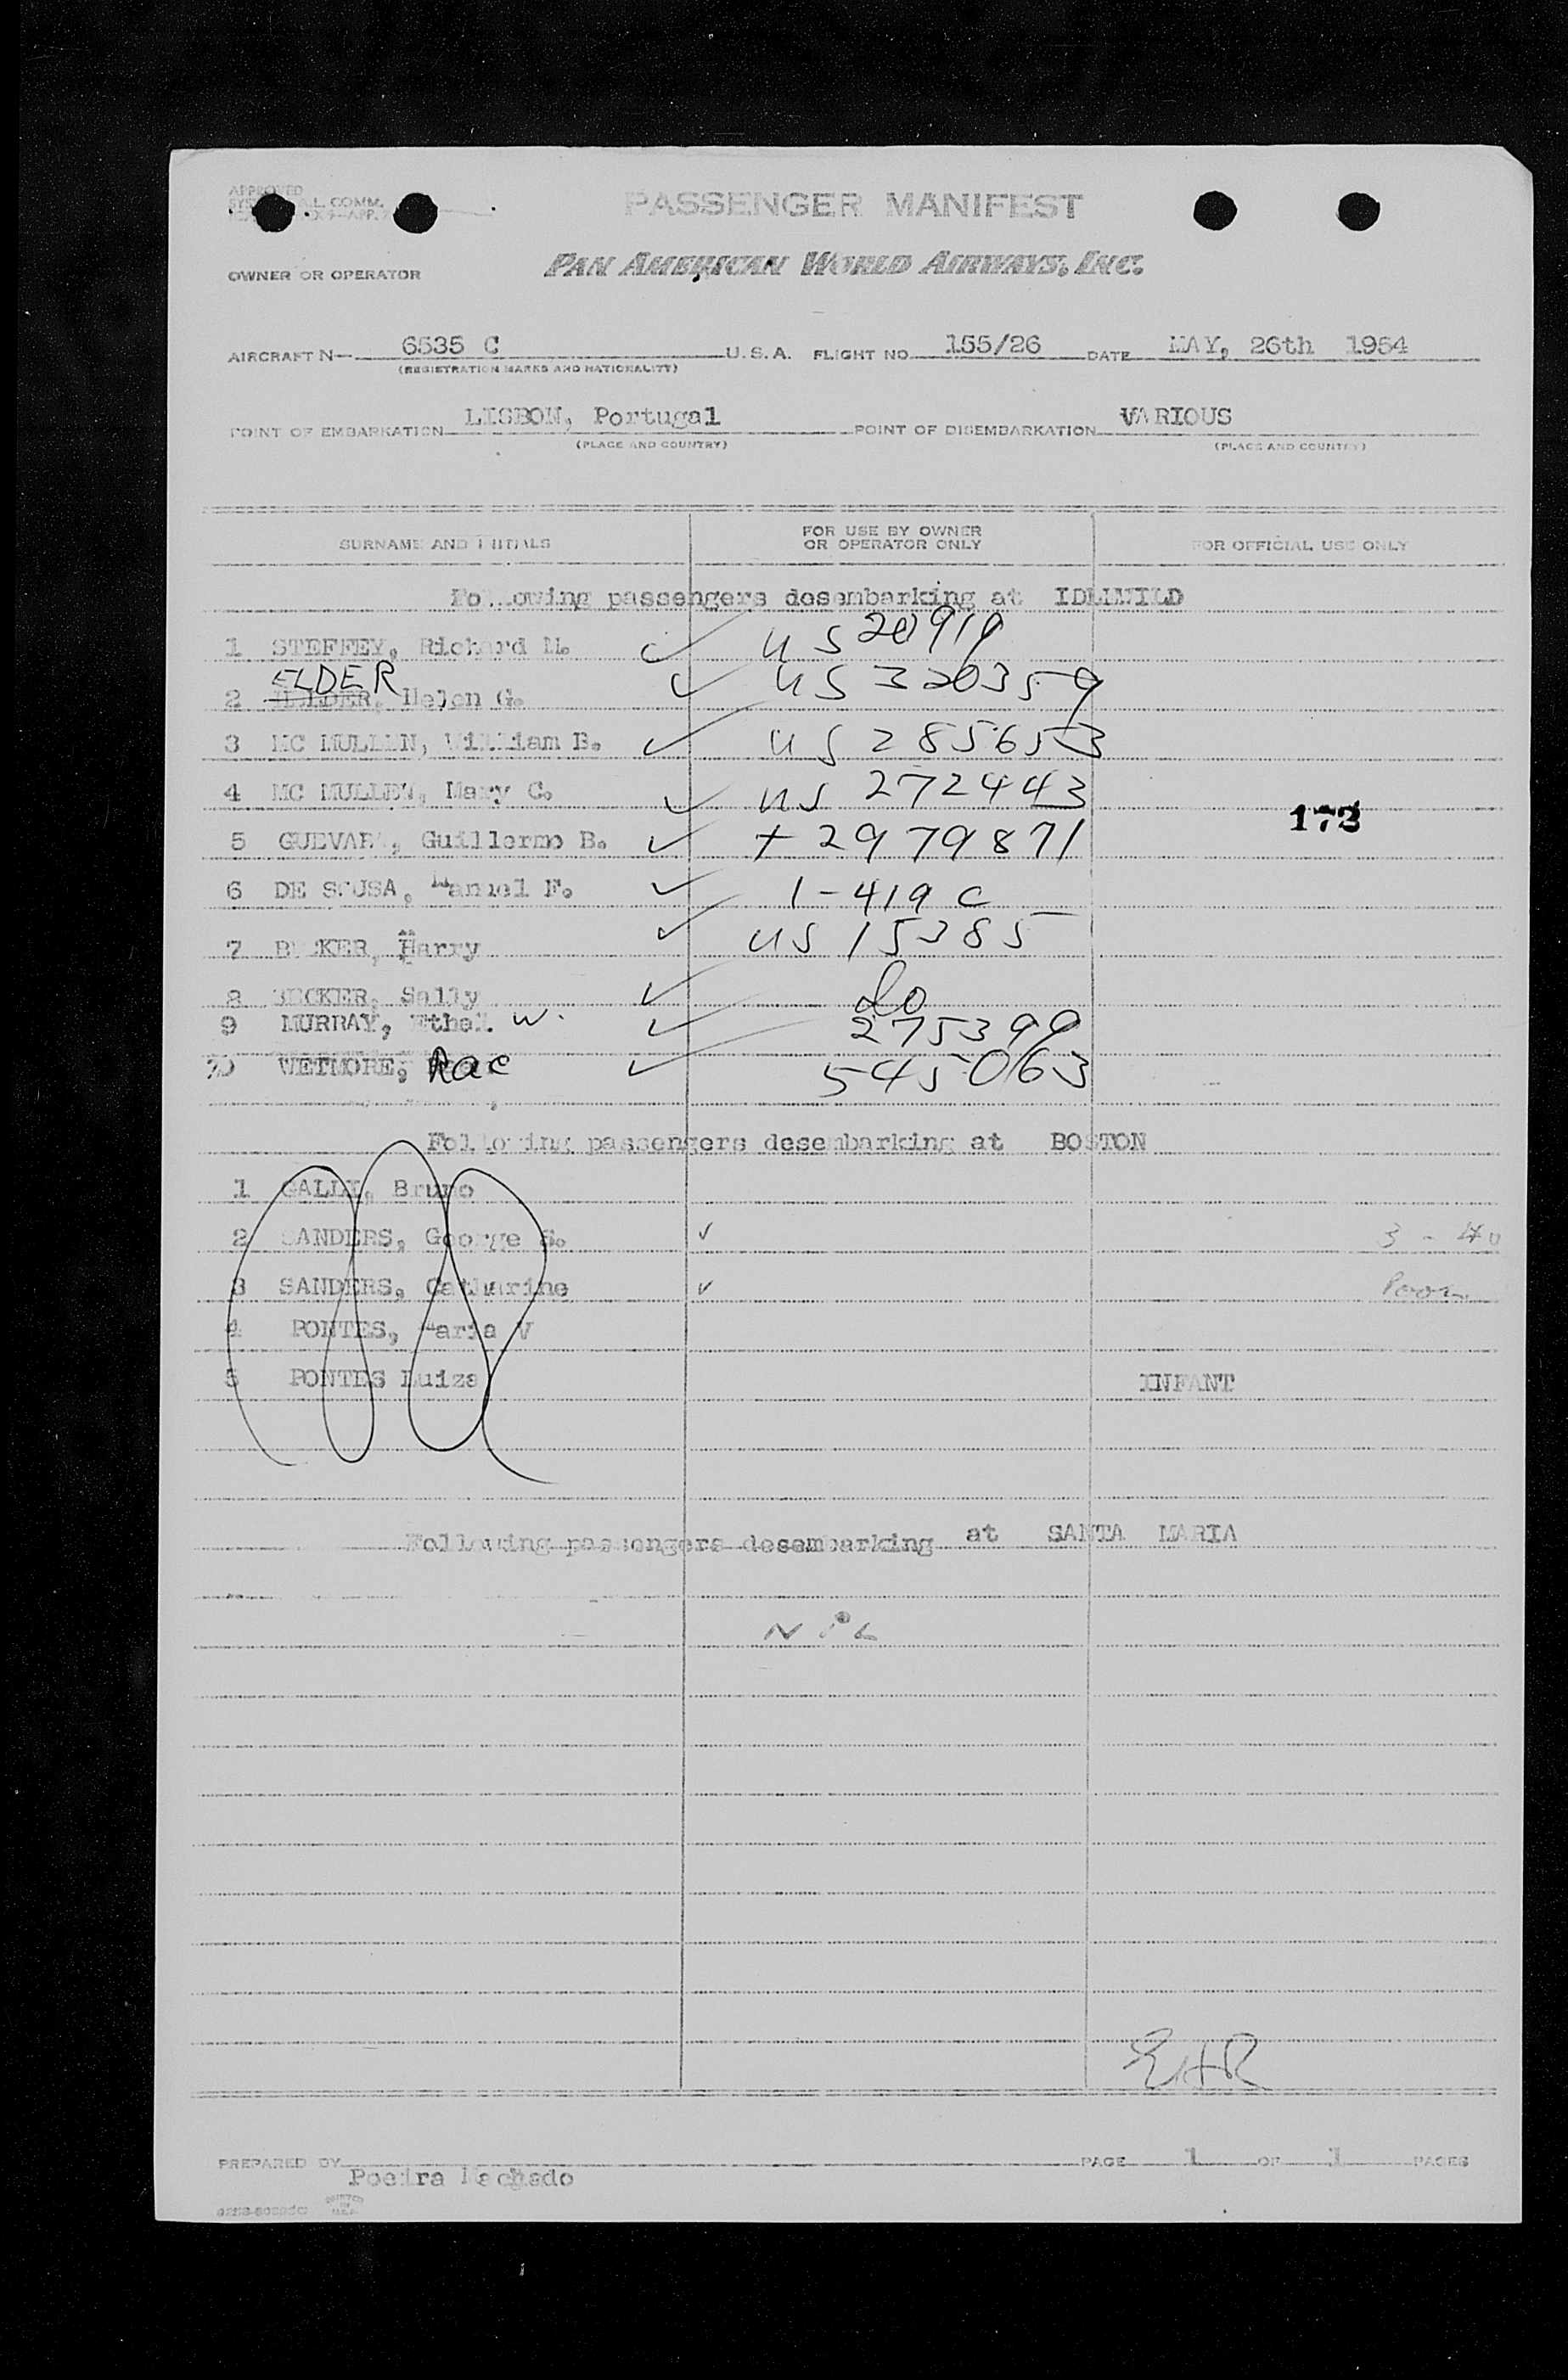 APPROVED
PASSENGER MANIFEST
OWNER OR OPERATOR PAN AMERICAN WORLD AIRWAYS, INC.
AIRCRAFT N— 6535 C U.S.A. FLIGHT NO. 155/26 DATE MAY, 26th 1954
(REGISTRATION MARKS AND NATIONALITY)
POINT OF EMBARKATION LISBON, Portugal POINT OF DISEMBARKATION VARIOUS
(PLACE AND COUNTRY) (PLACE AND COUNTRY)
SURNAME AND INITIALS FOR USE BY OWNER OR OPERATOR ONLY FOR OFFICIAL USE ONLY
Following passengers desembarking at IDLEWILD
1 STEFFEY, Richard M. ✓ US 20919
ELDER
2 Helen G. ✓ US 320359
3 MC MULLEN, William B. ✓ US 285653
4 MC MULLEN, Mary C. ✓ US 272443
173
5 GUEVARA, Guillermo B. ✓ + 2979871
6 DE SOUSA, Manuel F. ✓ 1-419 C
7 BECKER, Harry ✓ US 15385
8 BECKER, Sally ✓ do
9 MURRAY, Ethel W. ✓ 275399
10 WETMORE, Rae ✓ 545063
Following passengers desembarking at BOSTON
1 GALLI, Bruno
2 SANDERS, George S. ✓ 3 - 40
3 SANDERS, Catharine ✓
4 PONTES, Maria V
5 PONTES Luiza INFANT
Following passengers desembarking at SANTA MARIA
NiL
EHR
PREPARED BY Machado PAGE 1 OF 1 PAGES
PRINTED IN U.S.A.